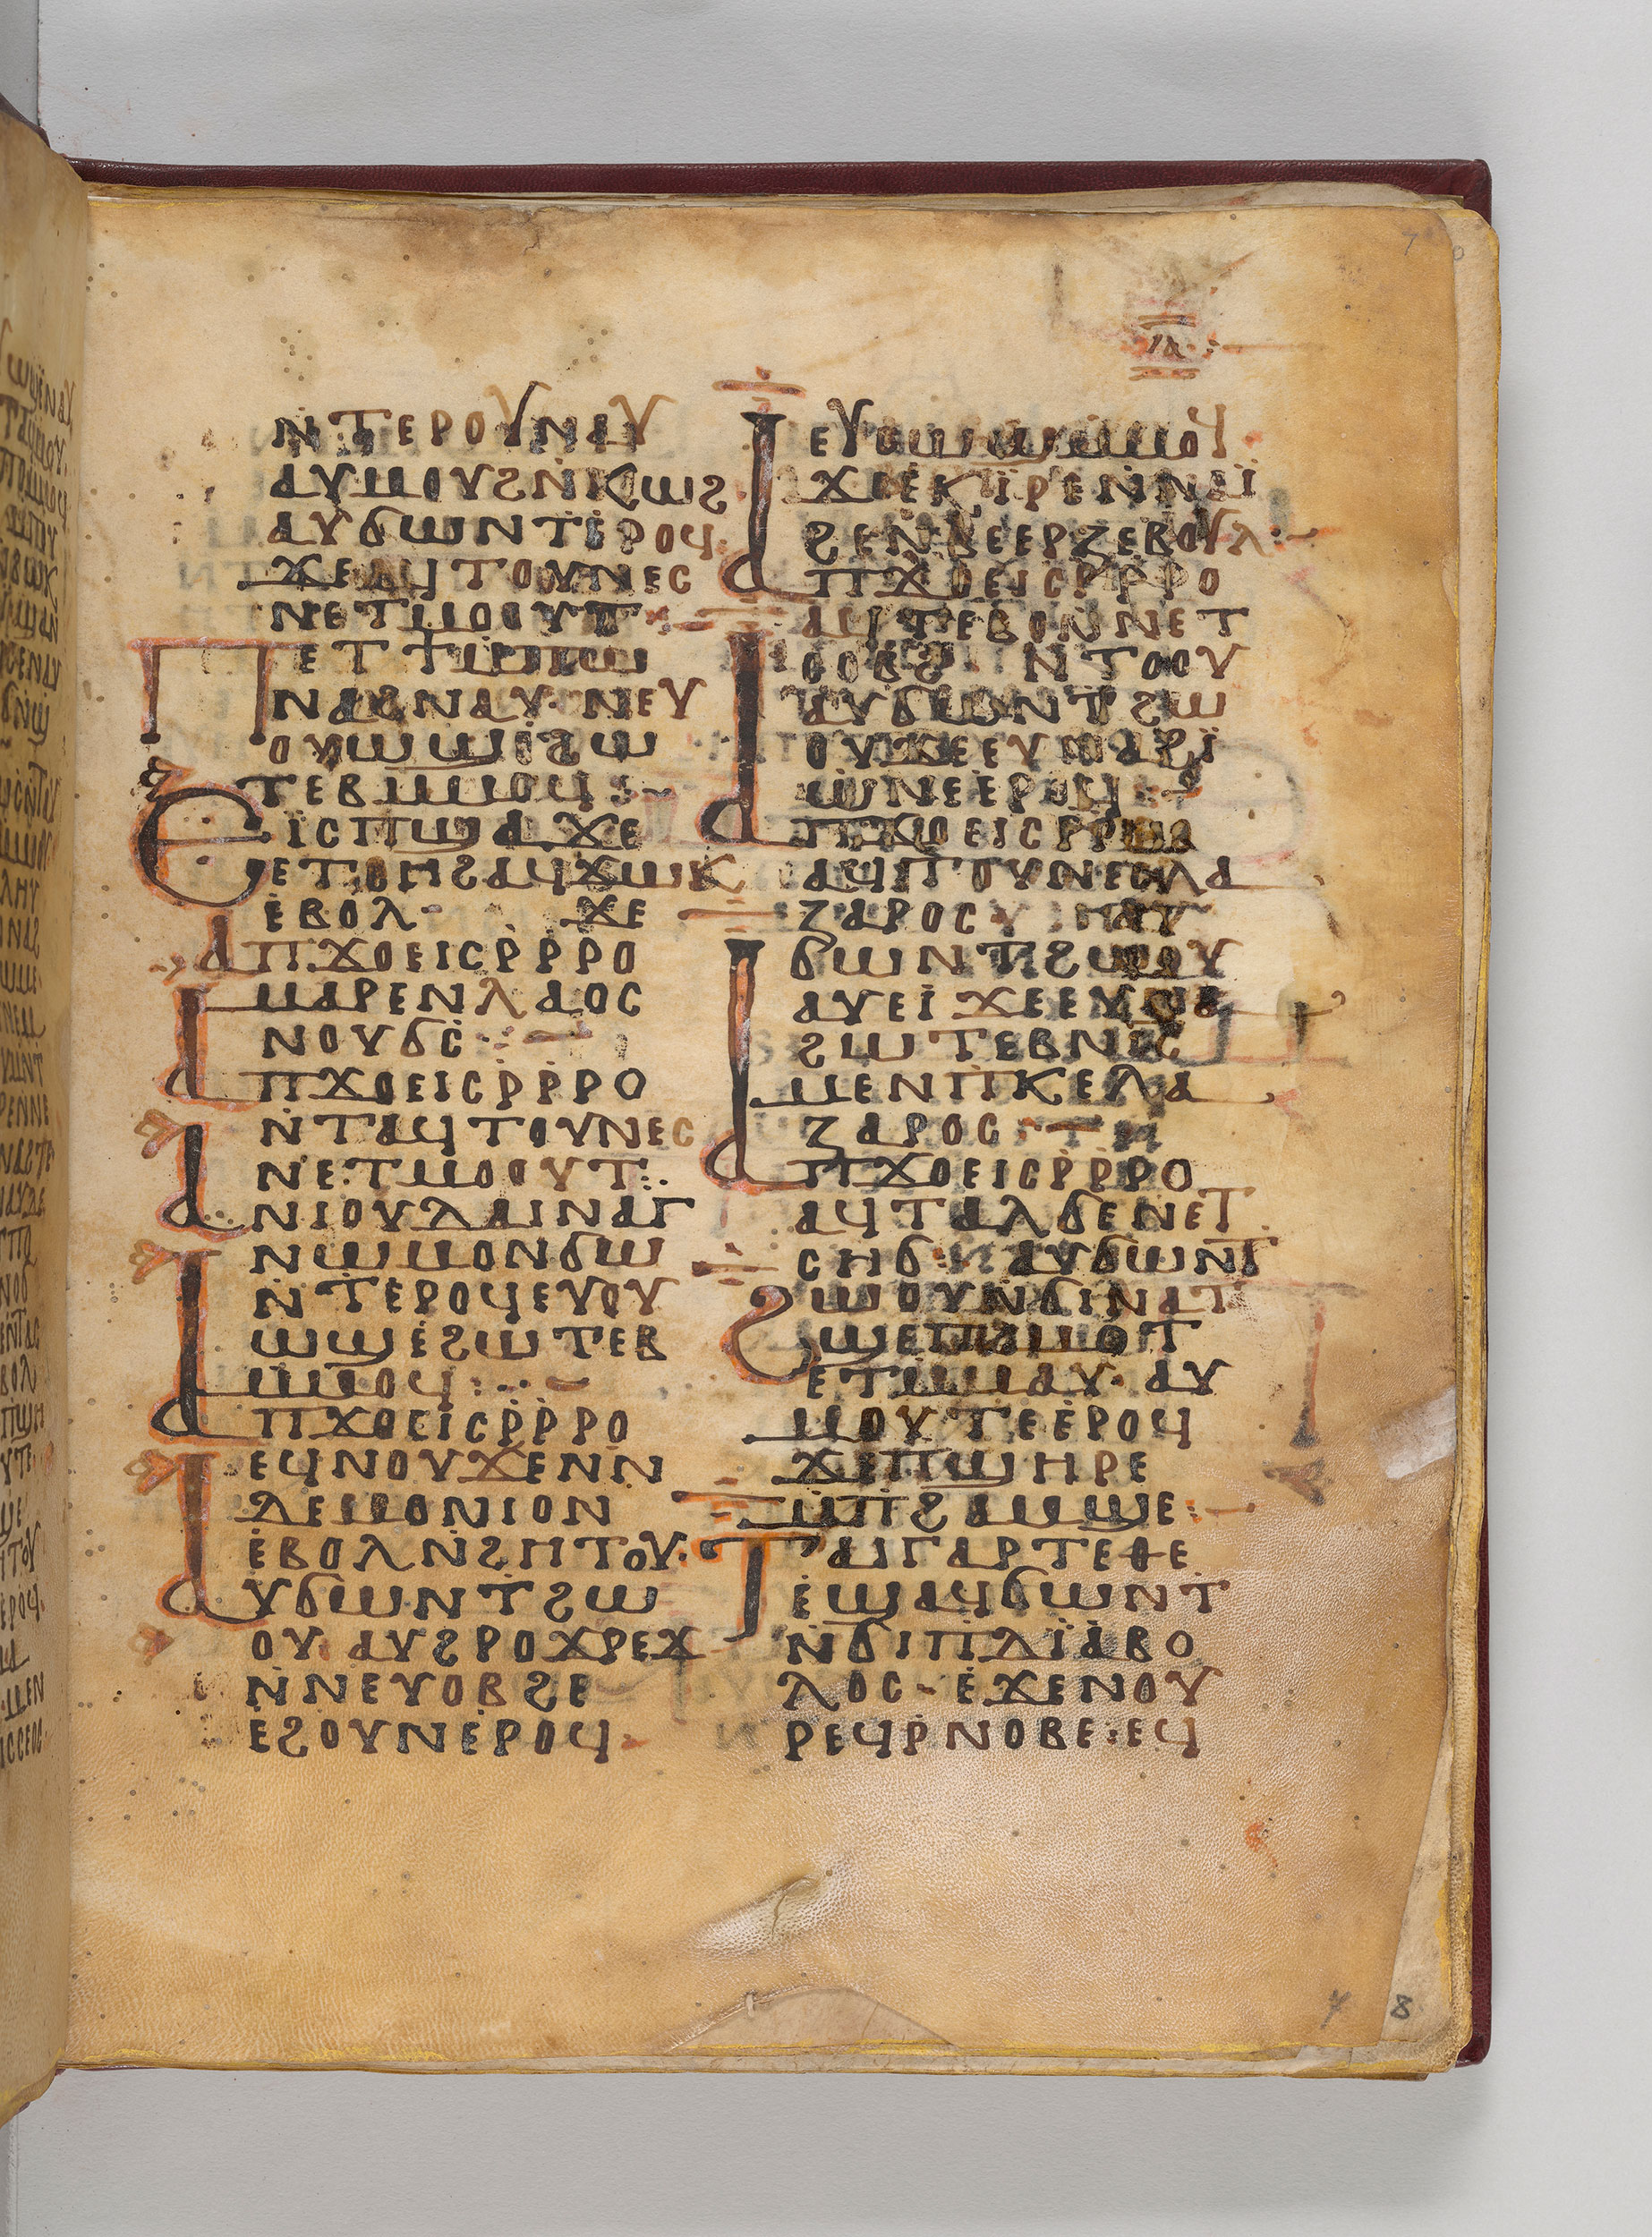 ⲓⲁ
ⲛ̇ⲧⲉⲣⲟⲩⲛⲁⲩ
ⲁⲩⲙⲟⲩϩⲛ̇ⲕⲱϩ
ⲁⲩϭⲱⲛⲧⲉ̇ⲣⲟϥ
ϫⲉⲁϥⲧⲟⲩⲛⲉⲥ
ⲛⲉⲧⲙⲟⲟⲩⲧ
ⲡⲉⲧ
ⲛⲁϩⲛⲁⲩ· ⲛⲉⲩ
ⲟⲩⲱϣⲉ̇ϩⲱ
ⲧⲉⲃⲙⲙⲟϥ
ⲉⲓⲥⲡϣⲁϫⲉ
ⲉⲧⲟⲏϩⲁϥϫⲱⲕ
ⲉ̇ⲃⲟⲗ ϫⲉ
ⲁⲡϫⲟⲉⲓⲥⲣ̇ⲣ̇ⲣⲟ
ⲙⲁⲣⲉⲛⲗⲁⲟⲥ
ⲛⲟⲩϭⲥ̇
ⲁⲡϫⲟⲉⲓⲥⲣ̇ⲣ̇ⲣⲟ
ⲛ̇ⲧⲁϥⲧⲟⲩⲛⲉⲥ
ⲛⲉⲧⲙⲟⲟⲩⲧ:
ⲁⲛⲓⲟⲩⲇⲁⲓⲛⲁⲅ
ⲛⲱⲙⲟⲛϭⲱ
ⲛ̇ⲧⲉ̇ⲣⲟϥⲉⲩⲟⲩ
ⲱϣⲉ̇ϩⲱⲧⲉⲃ
ⲙⲙⲟϥ
ⲁⲡϫⲟⲉⲓⲥⲣ̇ⲣ̇ⲣⲟ
ⲉϥⲛⲟⲩϫⲉⲛⲛ
ⲇⲉⲙⲟⲛⲓⲟⲛ
ⲉ̇ⲃⲟⲗⲛ̇ϩⲏⲧⲟⲩ·
ⲁⲩϭⲱⲛⲧϩⲱ
ⲟⲩ· ⲁⲩϩⲣⲟϫⲣⲉϫ
ⲛ̇ⲛⲉⲩⲟⲃϩⲉ
ⲉ̇ϩⲟⲩⲛⲉ̇ⲣⲟϥ
ⲉⲩⲟⲩⲱ ⲙⲙⲟⲥ
ϫⲉⲉⲕⲓ̈ⲣⲉⲛ̇ⲛⲁⲓ̈
ϩⲉⲛⲃⲉⲉⲣⲍⲉⲃⲟⲩⲗ
ⲁⲡϫⲟⲉⲓⲥⲣ̇ⲣ̇ⲣⲟ
ⲁϥⲧⲉⲃⲟⲛⲛⲉⲧ
ⲛ̇ⲧⲟⲟⲩ
ⲁⲩϭⲱⲛⲧϩⲱ
ⲟⲩϫⲉⲉⲩ
ⲱⲛⲉⲉ̇ⲣⲟϥ
ⲁⲡϫⲟⲉⲓⲥⲣ̇ⲣ̇ⲣⲟ
ⲁϥⲧⲟⲩⲛⲉⲥⲗⲁ
ⲍⲁⲣⲟⲥ ⲁⲩ
ϭⲱⲛⲧϩⲱⲟⲩ
ⲁⲩⲉⲓ̇ ϫⲉⲉⲩⲛⲉ
ϩⲱⲧⲉⲃⲛ̇ⲓⲥ̅
ⲙⲉⲛⲡⲕⲉⲗⲁ
ⲍⲁⲣⲟⲥ
ⲁⲡϫⲟⲉⲓⲥⲣ̇ⲣ̇ⲣⲟ
ⲁϥⲧⲁⲗϭⲉⲛⲉⲧ
ⲥⲏϭ ⲁⲩϭⲱⲛⲧ
ϩⲱⲟⲩⲛ̇ϭⲓⲛⲁⲧ
ϣⲉⲡϩⲙⲟⲧ
ⲉⲧⲙⲙⲁⲩ· ⲁⲩ
ⲙⲟⲩⲧⲉⲉ̇ⲣⲟϥ
ϫⲉⲡϣⲏⲣⲉ
ⲙⲡϩⲁⲙϣⲉ:
ⲧⲁⲓⲅⲁⲣⲧⲉⲑⲉ
ⲉ̇ϣⲁϥϭⲱⲛⲧ
ⲛ̇ϭⲓⲡⲇⲓ̈ⲁⲃⲟ
ⲗⲟⲥ· ⲉ̇ϫⲉⲛⲟⲩ
ⲣⲉϥⲣ̇ⲛⲟⲃⲉ:ⲉϥ